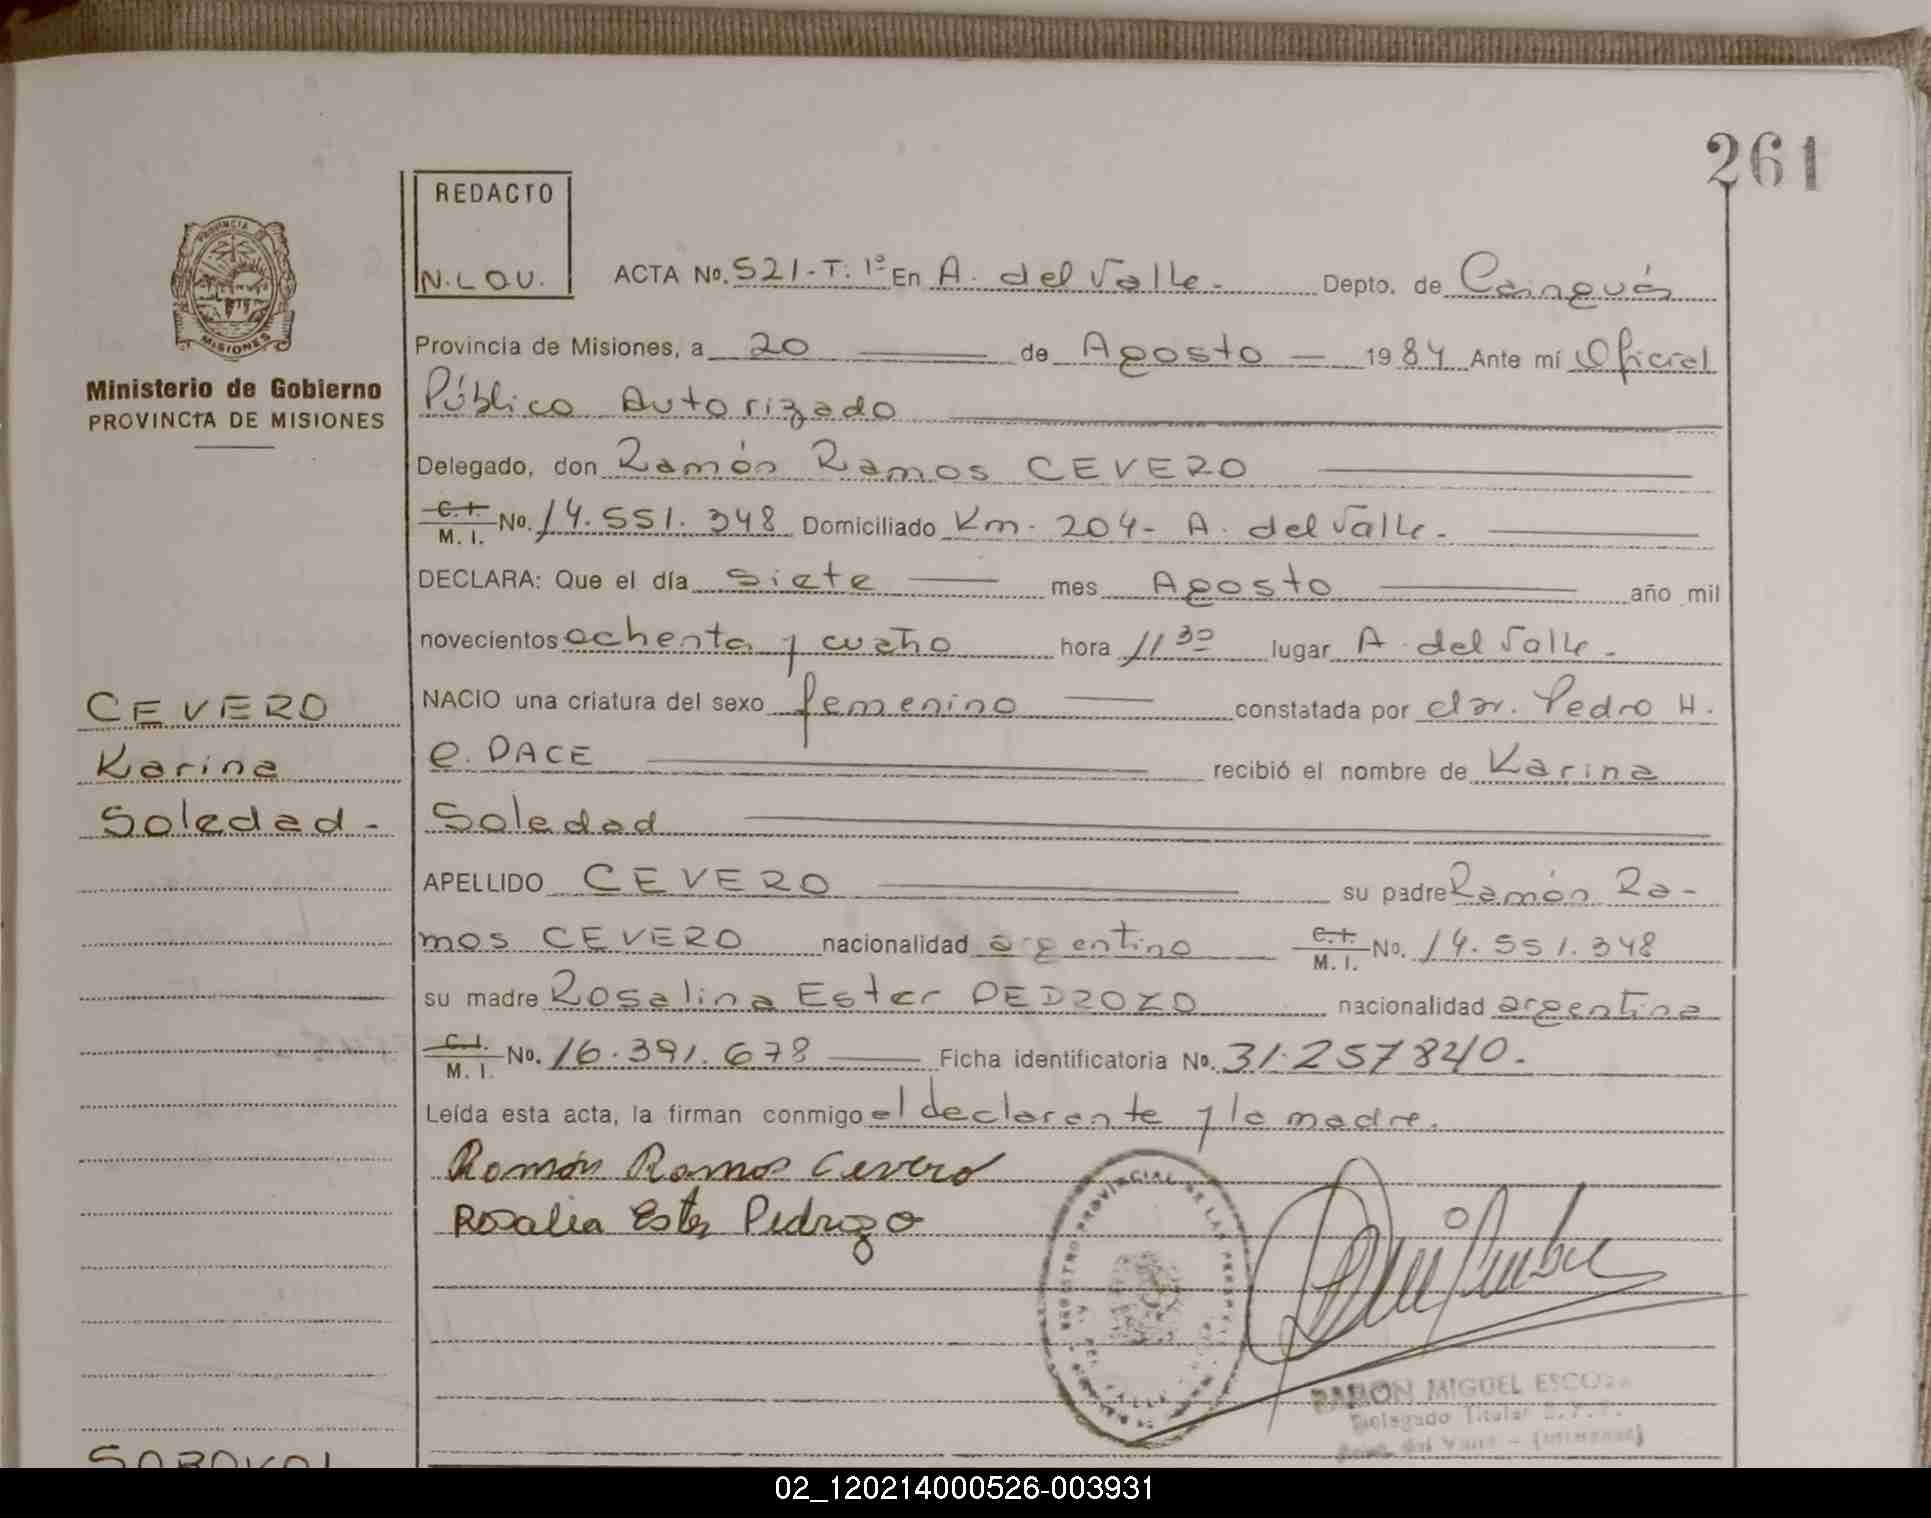 261
REDACTO
N.L.O.V.
PROVINCIA
MISIONES
ACTA No. 521-T. 1º En A. del Valle. Depto. de Cainguás
Provincia de Misiones, a 20 de Agosto 1984 Ante mí Oficial
Ministerio de Gobierno
PROVINCIA DE MISIONES
Público Autorizado
Delegado, don Ramón Ramos CEVERO
C.I.
M. I. No. 14.551.348 Domiciliado Km. 204- A. del Valle.
DECLARA: Que el día siete mes Agosto año mil
novecientos ochenta y cuatro hora 11 30 lugar A. del Valle.
CEVERO
NACIO una criatura del sexo femenino constatada por el Dr. Pedro H.
Karina
e. DACE recibió el nombre de Karina
Soledad-
Soledad
APELLIDO CEVERO su padre Ramón Ra-
mos CEVERO nacionalidad argentino C.I. M. I. No. 14.551.348
su madre Rosalina Ester PEDROZO nacionalidad argentina
C.I.
M. I. No. 16.391.678 Ficha identificatoria No. 31.257840.
Leída esta acta, la firman conmigo el declarante y la madre.
Ramón Ramos Cevero
Rosalia Ester Pedrozo
REGISTRO PROVINCIAL DE LAS PERSONAS
RAMON MIGUEL
Delegado Titular
02_120214000526-003931